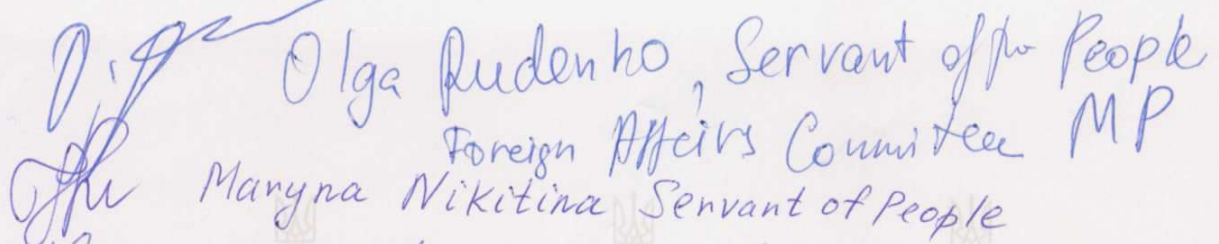 Olga Rudenko, Servant of the People
Foreign Affairs Commitee MP
Maryna Nikitina Servant of People